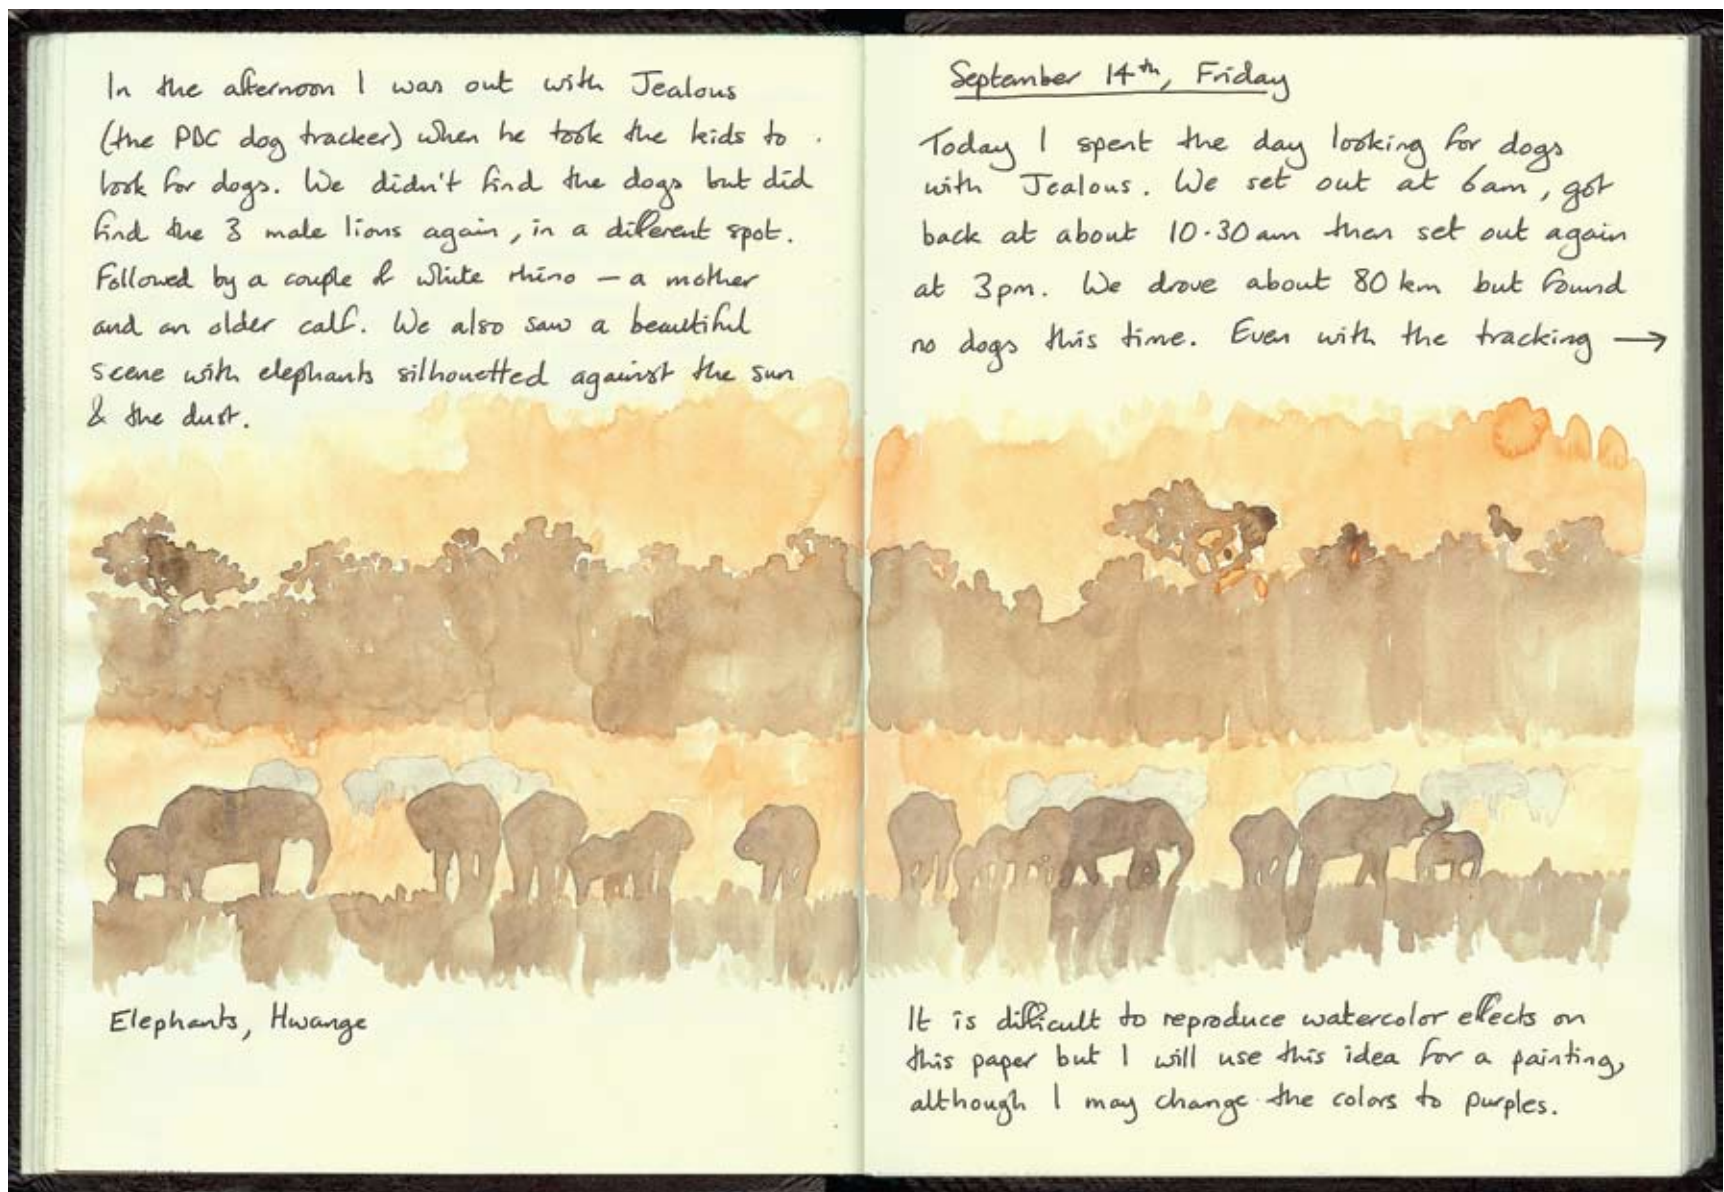 In the afternoon I was out with Jealous
(the PDC dog tracker) when he took the kids to
look for dogs. We didn't find the dogs but did
find the 3 male lions again, in a different spot.
Followed by a couple of white rhino – a mother
and an older calf. We also saw a beautiful
scene with elephants silhouetted against the sun
& the dust.
Elephants, Hwange
September 14th, Friday
Today I spent the day looking for dogs
with Jealous. We set out at 6am, got
back at about 10.30am then set out again
at 3pm. We drove about 80 km but found
no dogs this time. Even with the tracking →
It is difficult to reproduce watercolor effects on
this paper but I will use this idea for a painting,
although I may change the colors to purples.